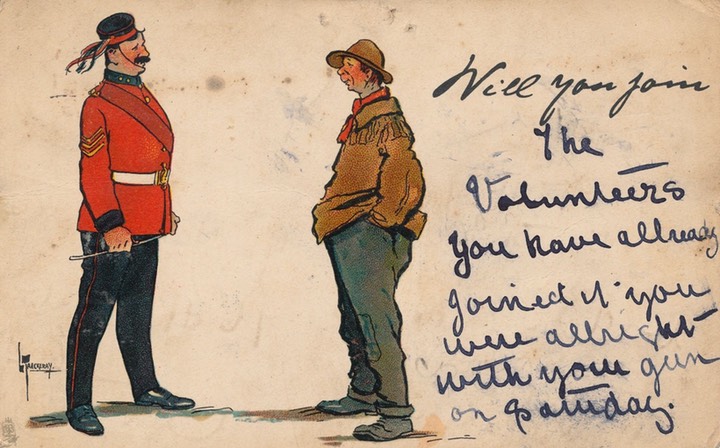 Will you join
The
Volunteers
You have allready
joined you
were allright
with your gun
on
THACKERAY.